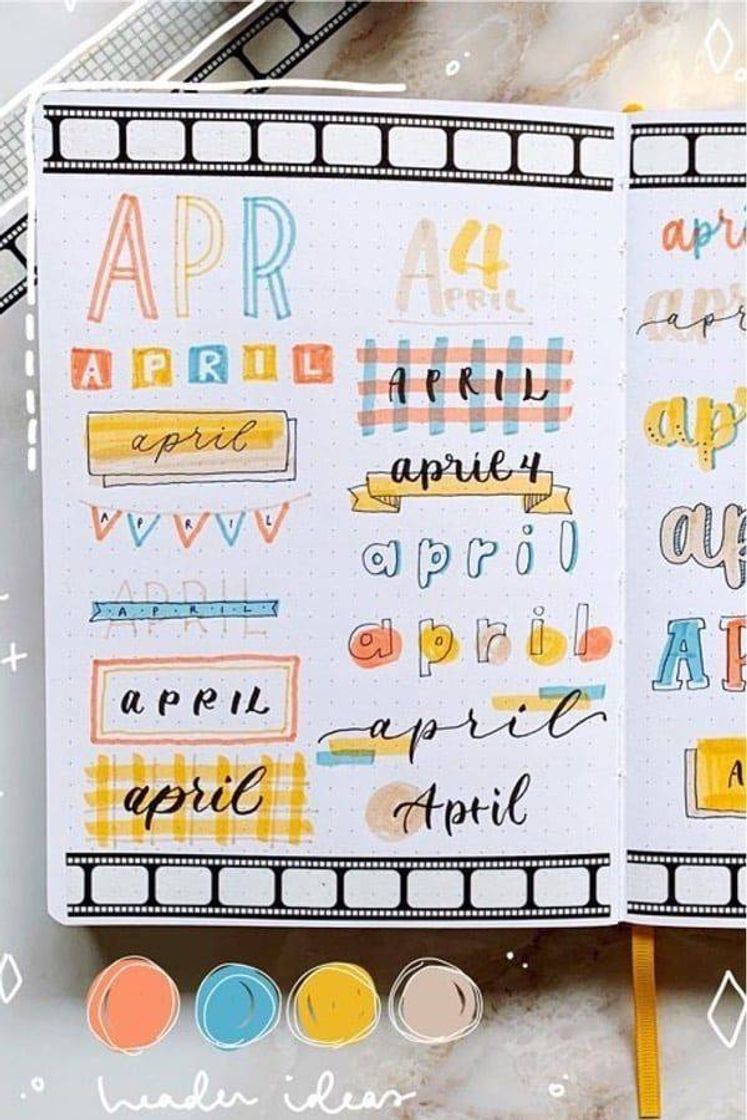 APR
APRIL
april
APRIL
APRIL
APRIL
APRIL
april
A4
APRIL
APRIL
april 4
april
april
april
April
apri
apr
ap
ap
AP
A
header ideas